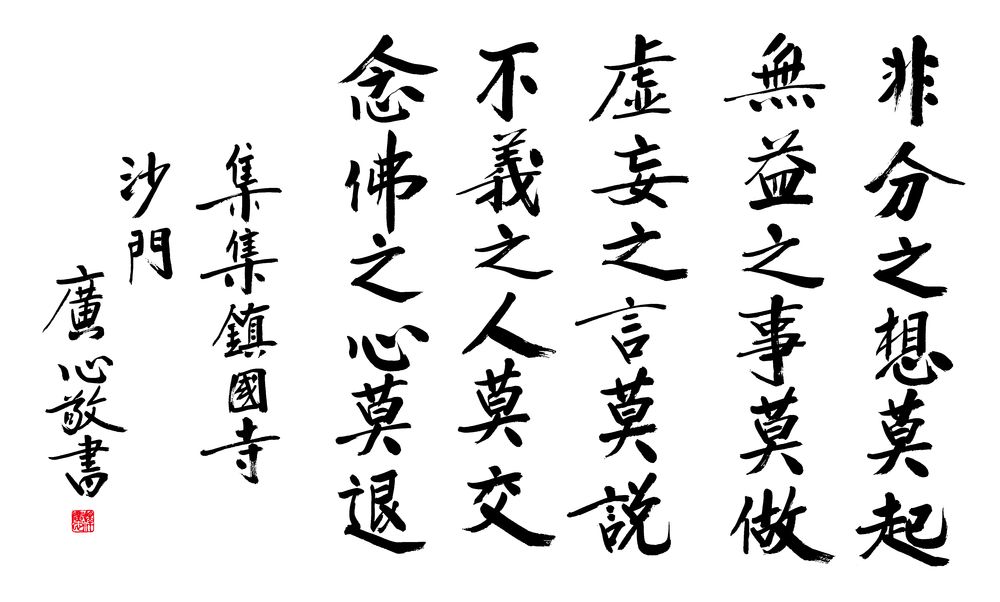 非分之想莫起
無益之事莫做
虛妄之言莫説
不義之人莫交
念佛之心莫退
集集鎮國寺
沙門
廣心敬書